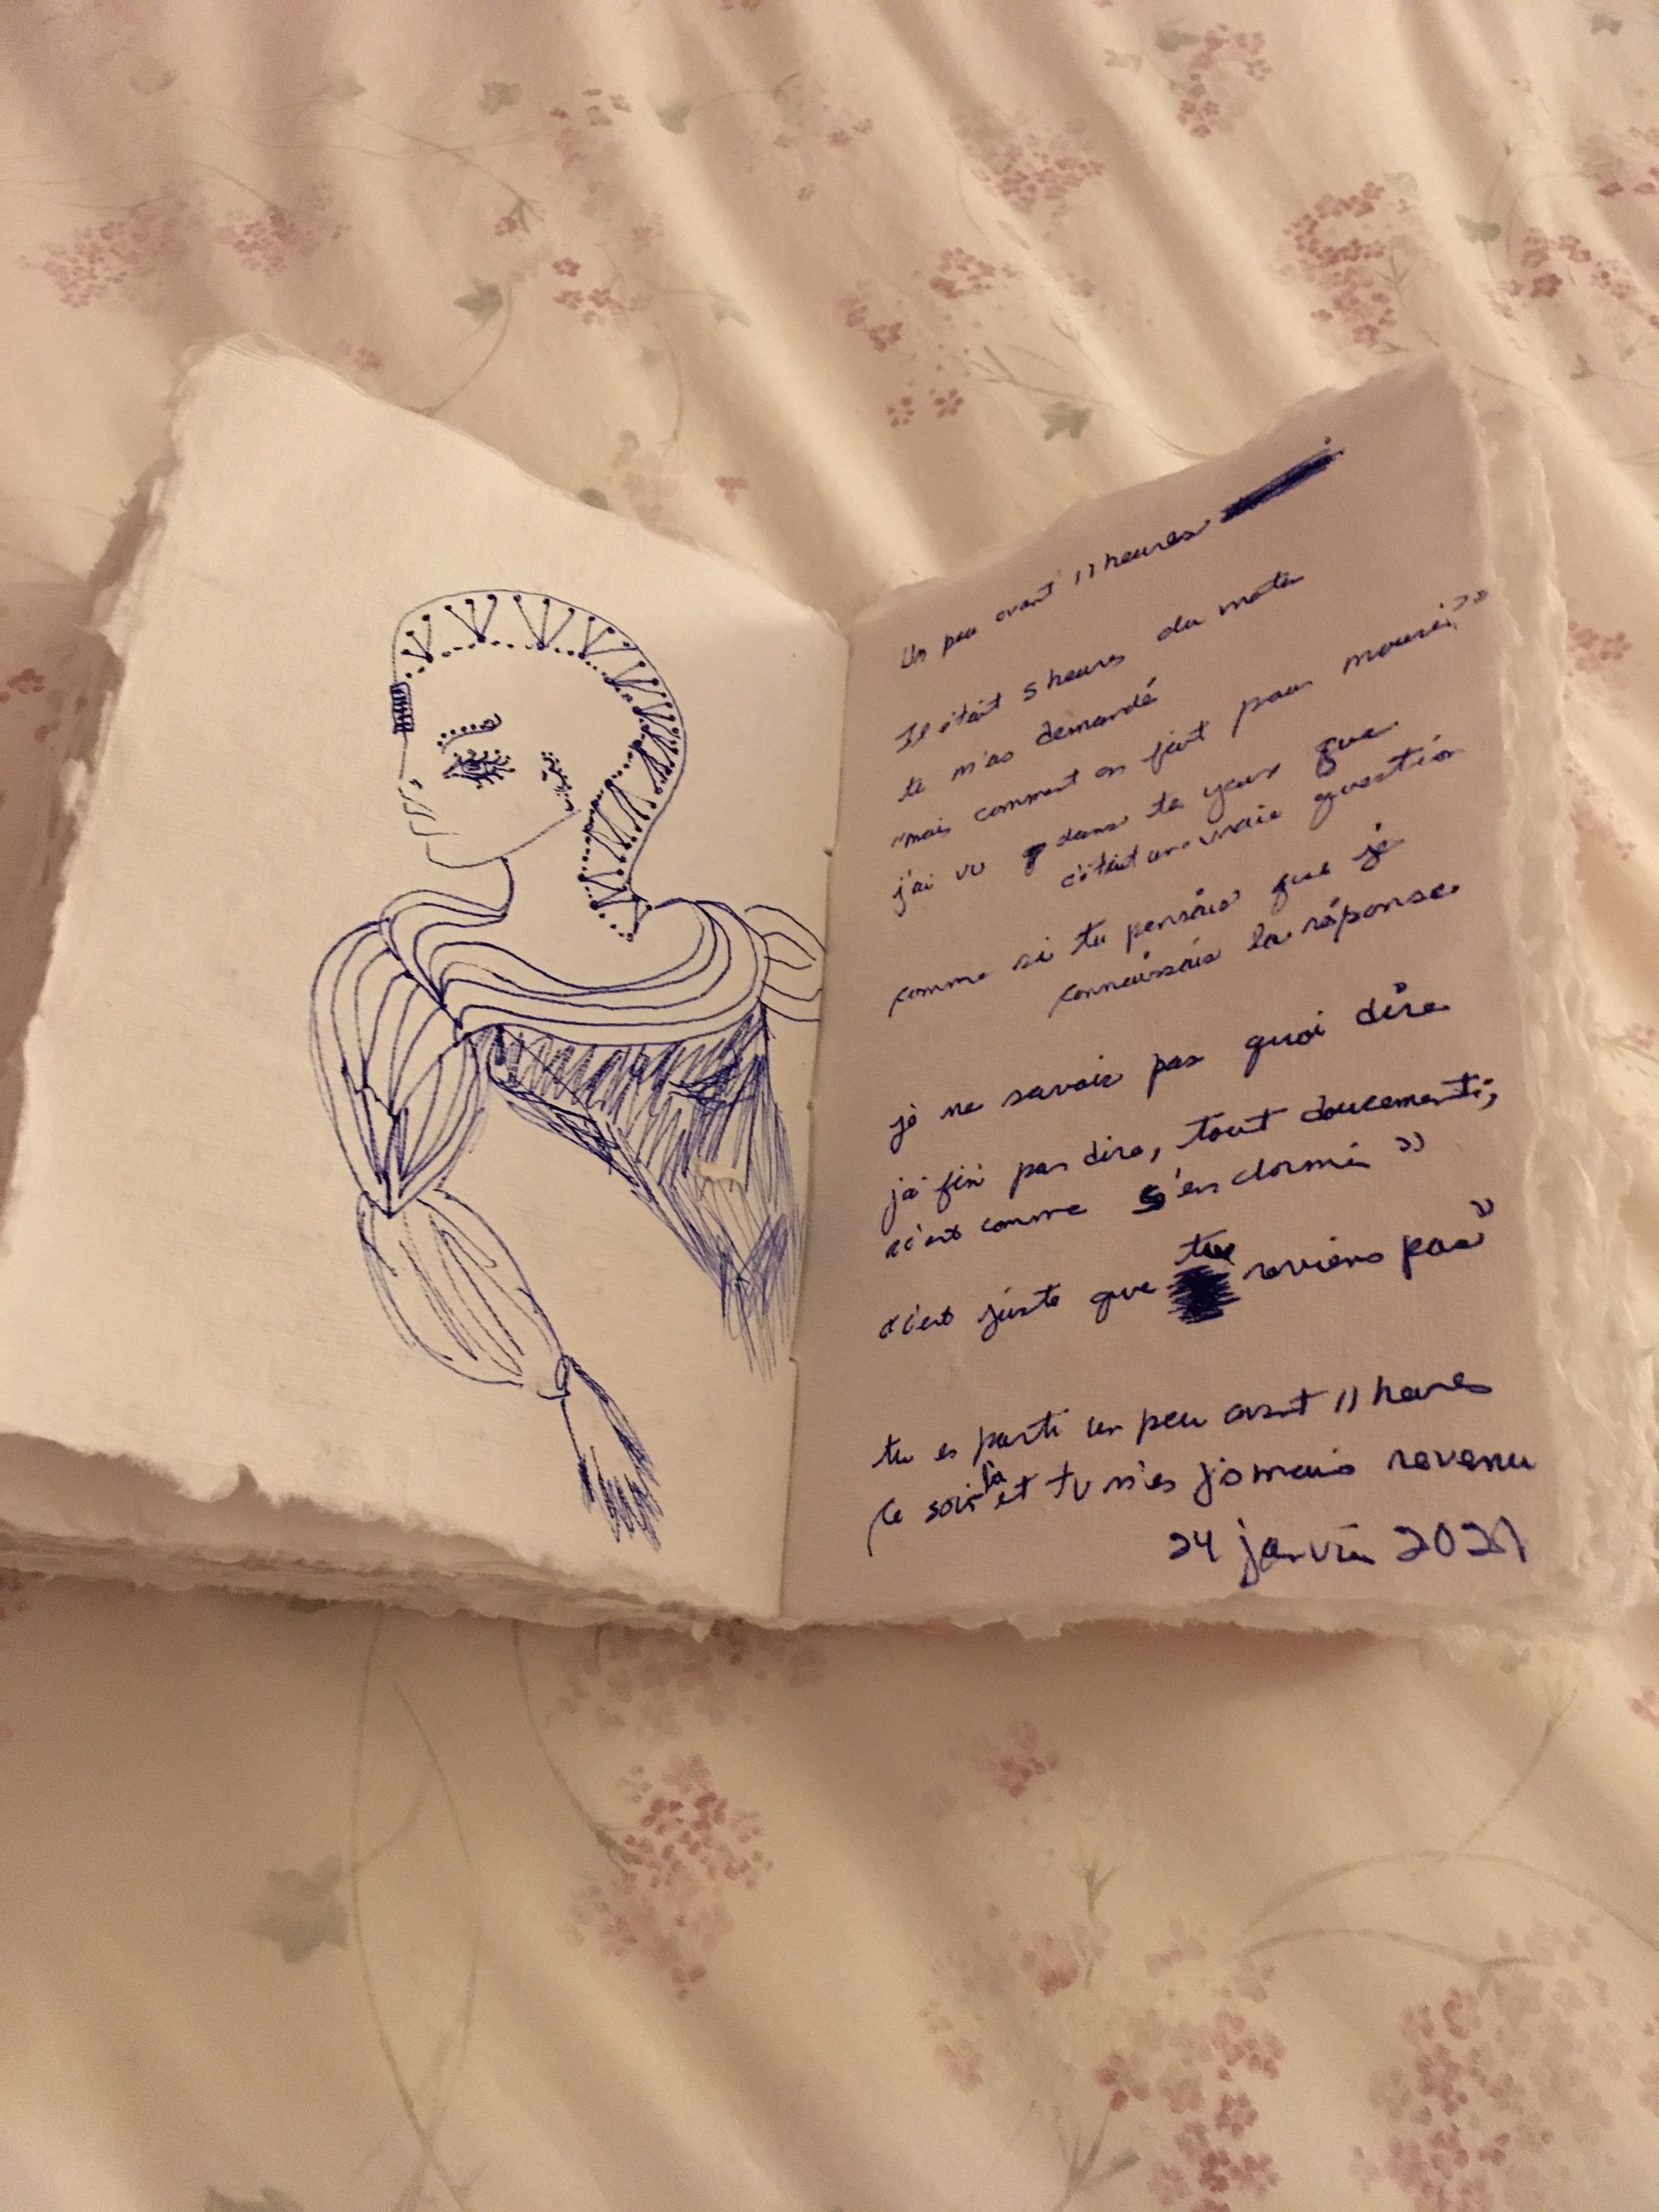 Un peu avant 11 heures
Il était 5 heures du matin
tu m'as demandé
"mais comment on fait pour mourir?"
j'ai vu dans tes yeux que
c'était une vraie question
comme si tu pensais que je
connaissais la réponse
je ne savais pas quoi dire
j'ai fini par dire, tout doucement;
"c'est comme s'en dormir"
c'est juste que tu reviens pas"
tu es parti un peu avant 11 heures
ce soir là et tu n'es jamais revenu
24 janvier 2021